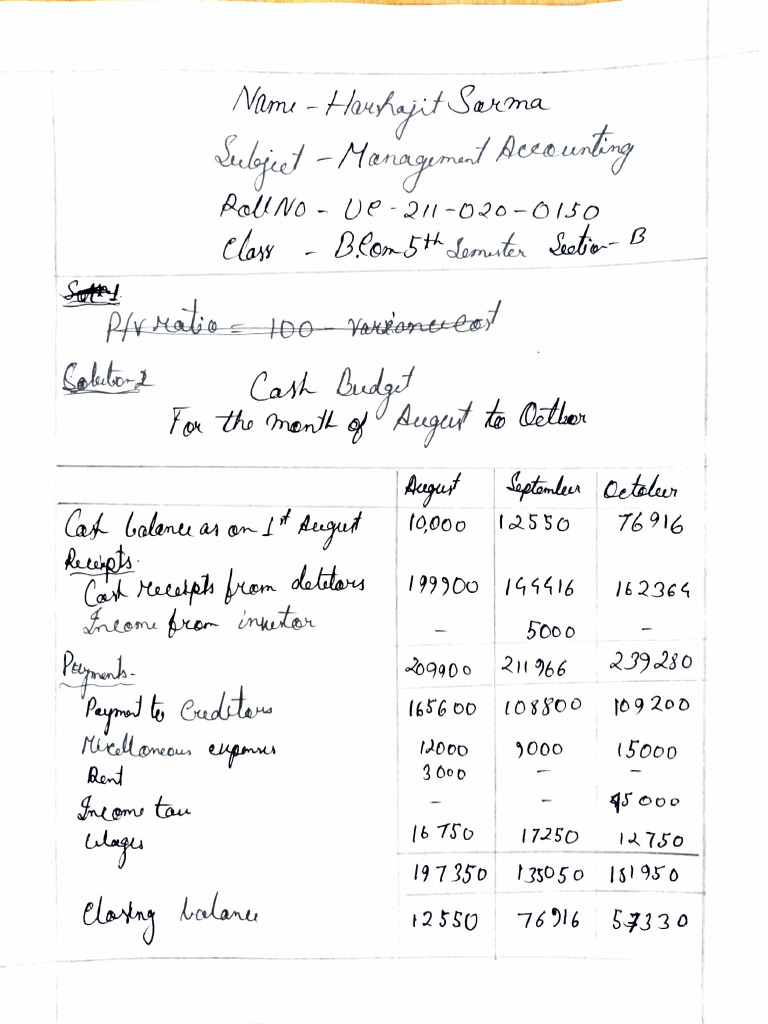 Name - Harshajit Sarma
Subject - Management Accounting
Roll No - UC-211-020-0150
Class - B.Com 5th Semester Section - B
Soln 1
P/V ratio = 100 - variance cost
Solution 2
Cash Budget
For the month of August to Octber
August September October
Cash balance as on 1st August 10,000 12550 76916
Receipts
Cash receipts from debtors 199900 194416 162364
Income from investor - 5000 -
Payments- 209900 211966 239280
Payment to Creditors 165600 108800 109200
Miscellaneous expenses 12000 9000 15000
Rent 3000 - -
Income tax - - 45000
Wages 16750 17250 12750
197350 135050 181950
Closing balance 12550 76916 57330